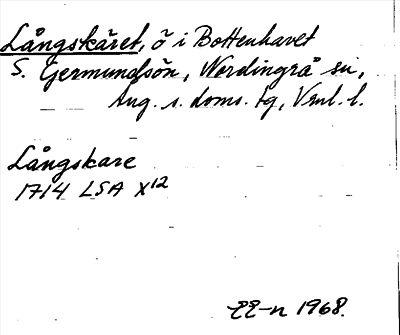 Långskäret, ö i Bottenhavet
S. Germundsön, Nordingrå sn,
Ång. s. doms. tg, Vnrl. l.
Långskare
1714 LSA X12
EE-n 1968.